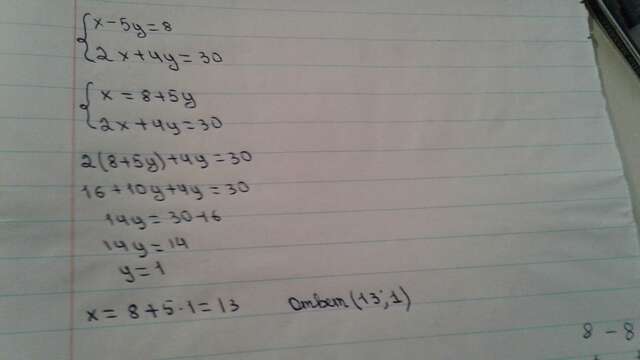 x-5y=8
2x+4y=30
x=8+5y
2x+4y=30
2(8+5y)+4y=30
16+10y+4y=30
14y=30-16
14y=14
y=1
x=8+5·1=13 ответ (13;1)
8-8